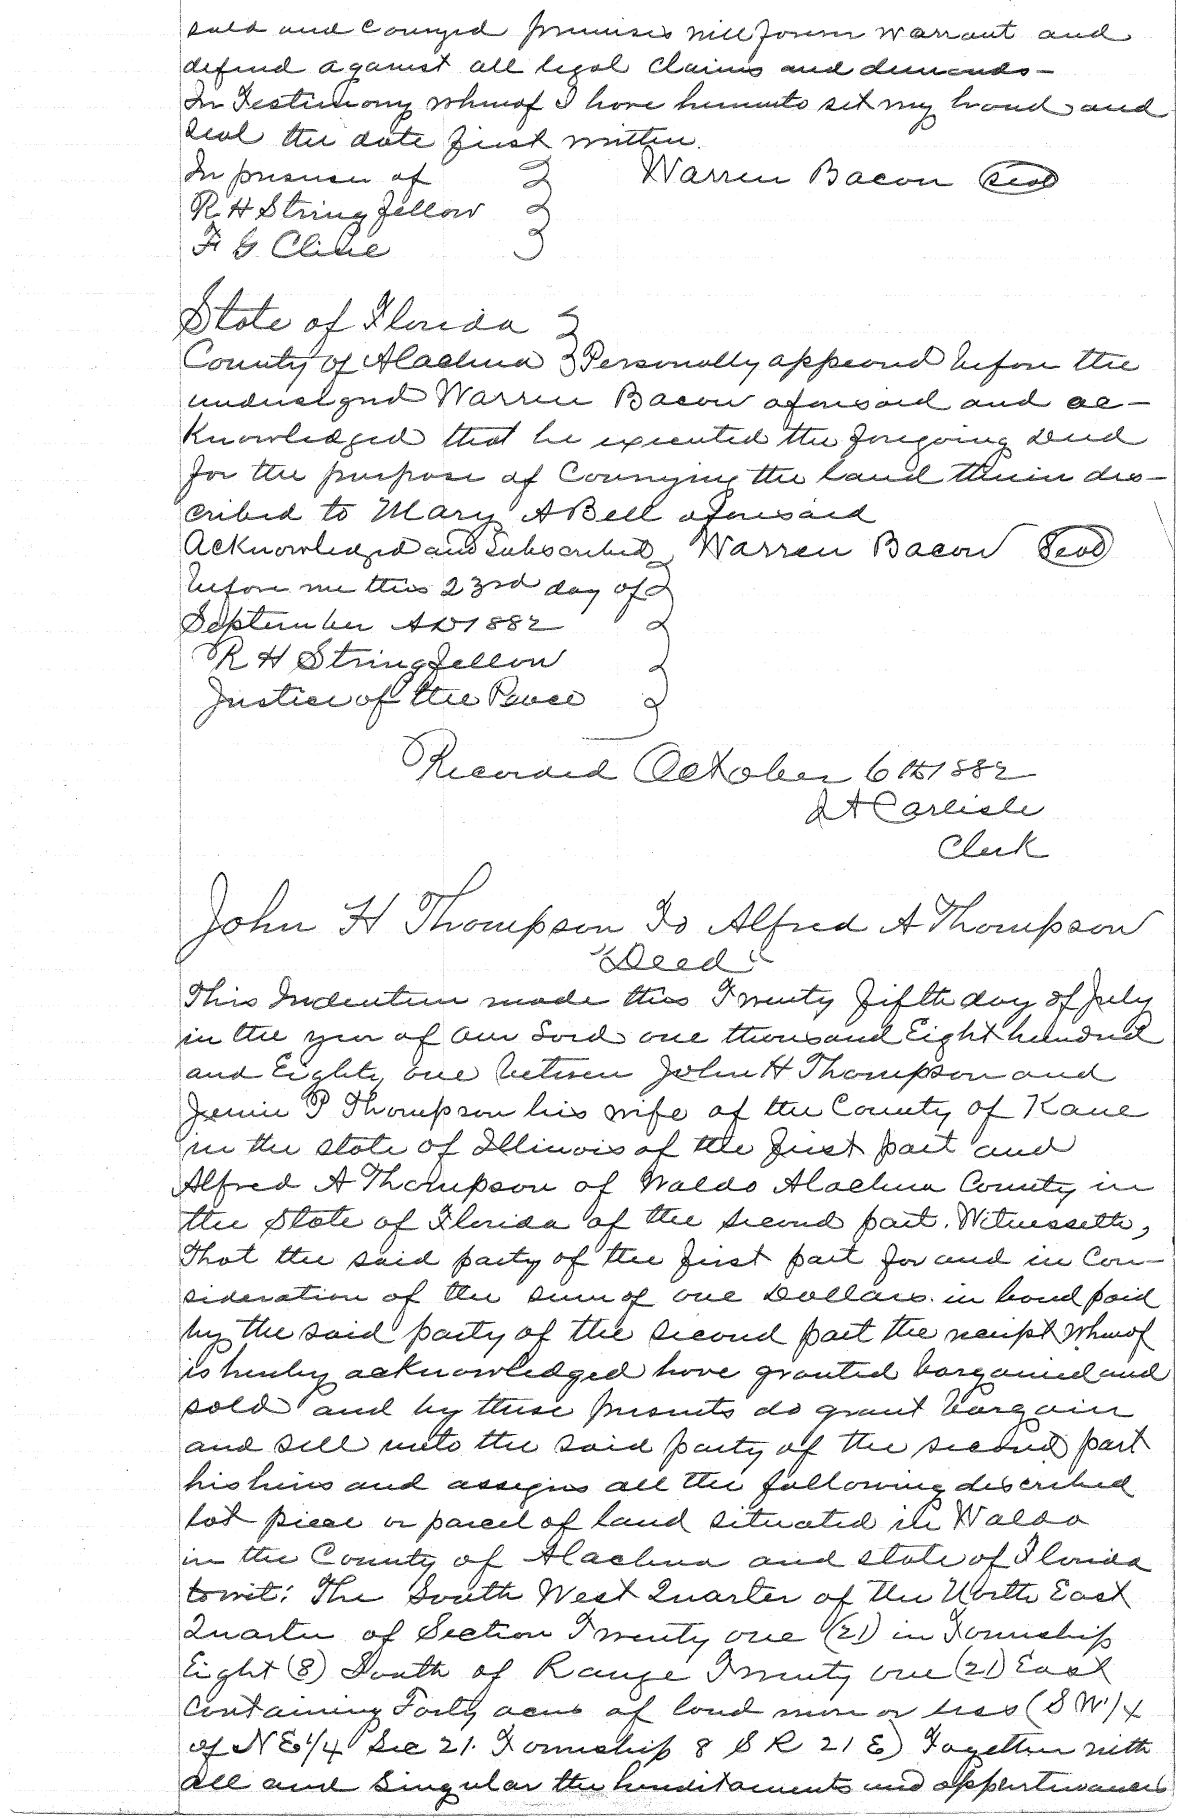 said and conveyed premises will forever warrant and
defend against all legal claims and demands-
In Testimony whereof I have hereunto set my hand and
seal the date first written.
In presence of Warren Bacon (seal)
R H Stringfellow
F G Cline
State of Florida
County of Alachua Personally appeared before the
undersigned Warren Bacon aforesaid and ac-
knowledged that he executed the foregoing deed
for the purpose of Conveying the land therein des-
cribed to Mary A Bell aforesaid
Acknowledged and Subscribed Warren Bacon (Seal)
before me this 23rd day of
September AD 1882
R H Stringfellow
Justice of the Peace
Recorded October 6th 1882
J A Carlisle
Clerk
John H Thompson To Alfred A Thompson
"Deed"
This Indenture made this Twenty fifth day of July
in the year of our Lord one thousand Eight hundred
and Eighty one between John H Thompson and
Jennie P Thompson his wife of the County of Kane
in the state of Illinois of the first part and
Alfred A Thompson of Waldo Alachua County in
the State of Florida of the second part. Witnesseth,
That the said party of the first part for and in Con-
sideration of the sum of one Dollars. in hand paid
by the said party of the second part the receipt whereof
is hereby acknowledged have granted bargained and
sold and by these presents do grant bargain
and sell unto the said party of the second part
his heirs and assigns all the following described
lot piece or parcel of land situated in Waldo
in the County of Alachua and state of Florida
towit: The South West Quarter of the North East
Quarter of Section Twenty one (21) in Township
Eight (8) South of Range Twenty one (21) East
Containing Forty acres of land more or less (S W 1/4
of N E 1/4 Sec 21. Township 8 S R 21 E) Together with
all and Singular the hereditaments and appurtenances